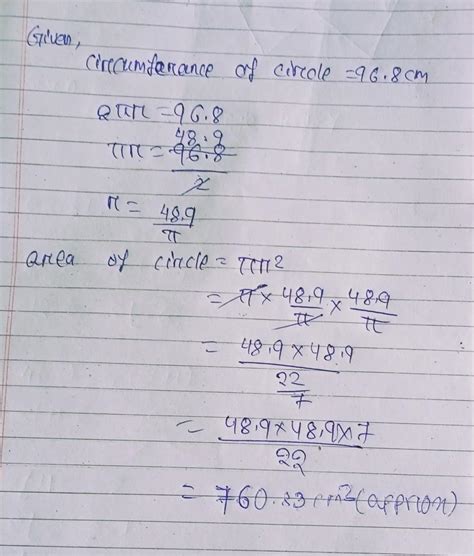 Given,
Circumferance of circle = 96.8 cm
2πr = 96.8
48.9
πr = 96.8
2
r = 48.9
π
area of circle = πr²
= π × 48.9 × 48.9
π π
= 48.9 × 48.9
22
7
= 48.9 × 48.9 × 7
22
= 760.33 cm² (approx)